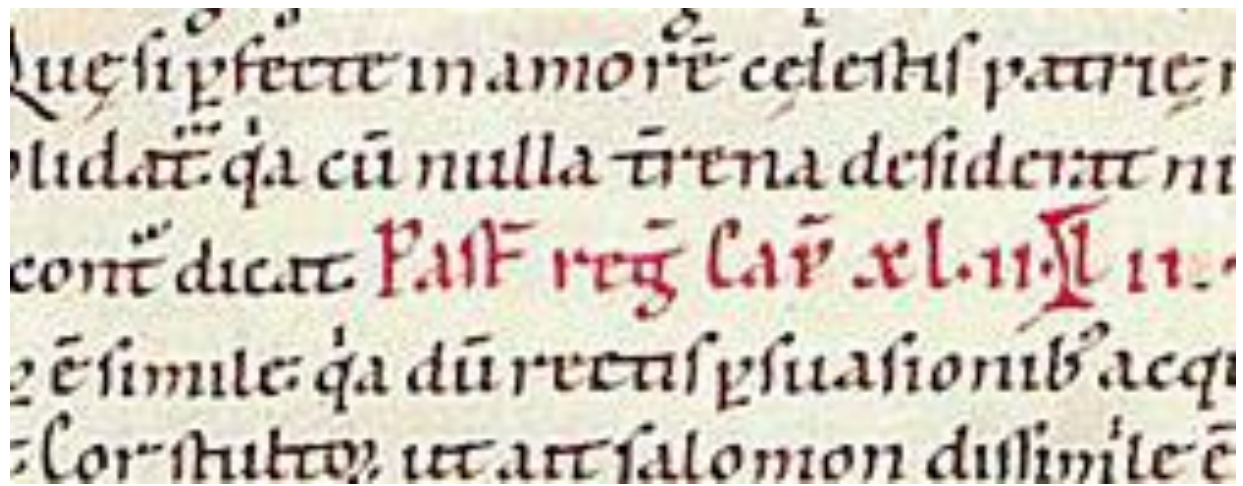 Quę si p̲fecte in amorē cęlestis patrię
lidat̄ qͥa cū nulla t̄rena desiderat
cont̄ dicat. Past̄ reḡ Cap̄ xl.ii. ii.
ē simile qͥa dū rectis p̲suasionibꝰ acq
Cor stultoꝝ ut ait salomon dissimile ē